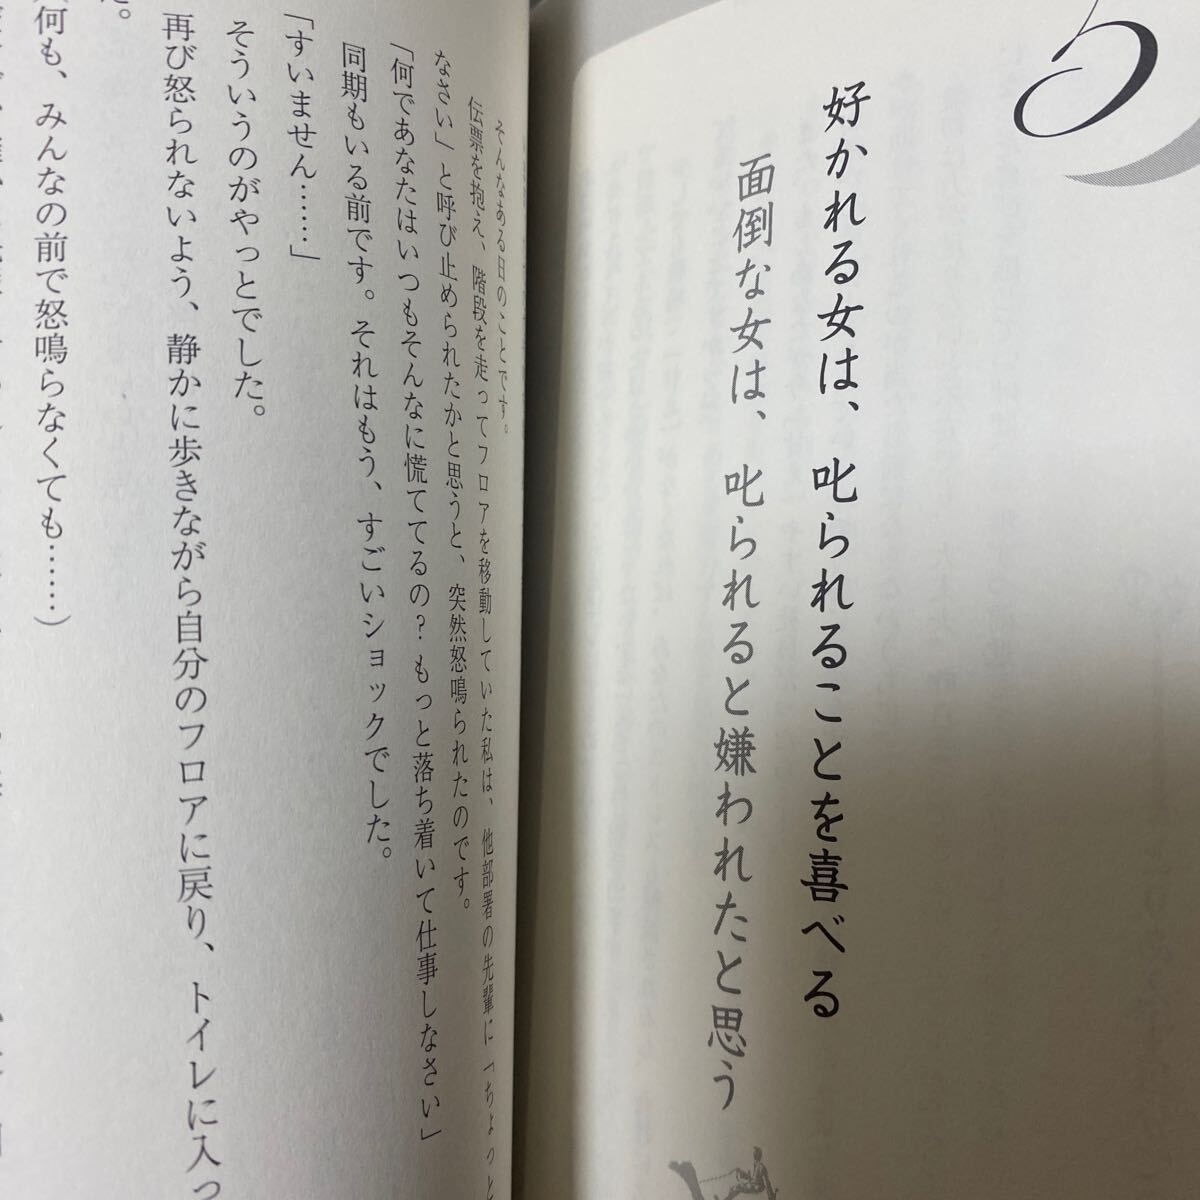 5
好かれる女は、叱られることを喜べる
面倒な女は、叱られると嫌われたと思う
そんなある日のことです。
伝票を抱え、階段を走ってフロアを移動していた私は、他部署の先輩に「ちょっと
なさい」と呼び止められたかと思うと、突然怒鳴られたのです。
「何であなたはいつもそんなに慌ててるの？もっと落ち着いて仕事しなさい」
同期もいる前です。それはもう、すごいショックでした。
「すいません……」
そういうのがやっとでした。
再び怒られないよう、静かに歩きながら自分のフロアに戻り、トイレに入っ
た。
何も、みんなの前で怒鳴らなくても……）